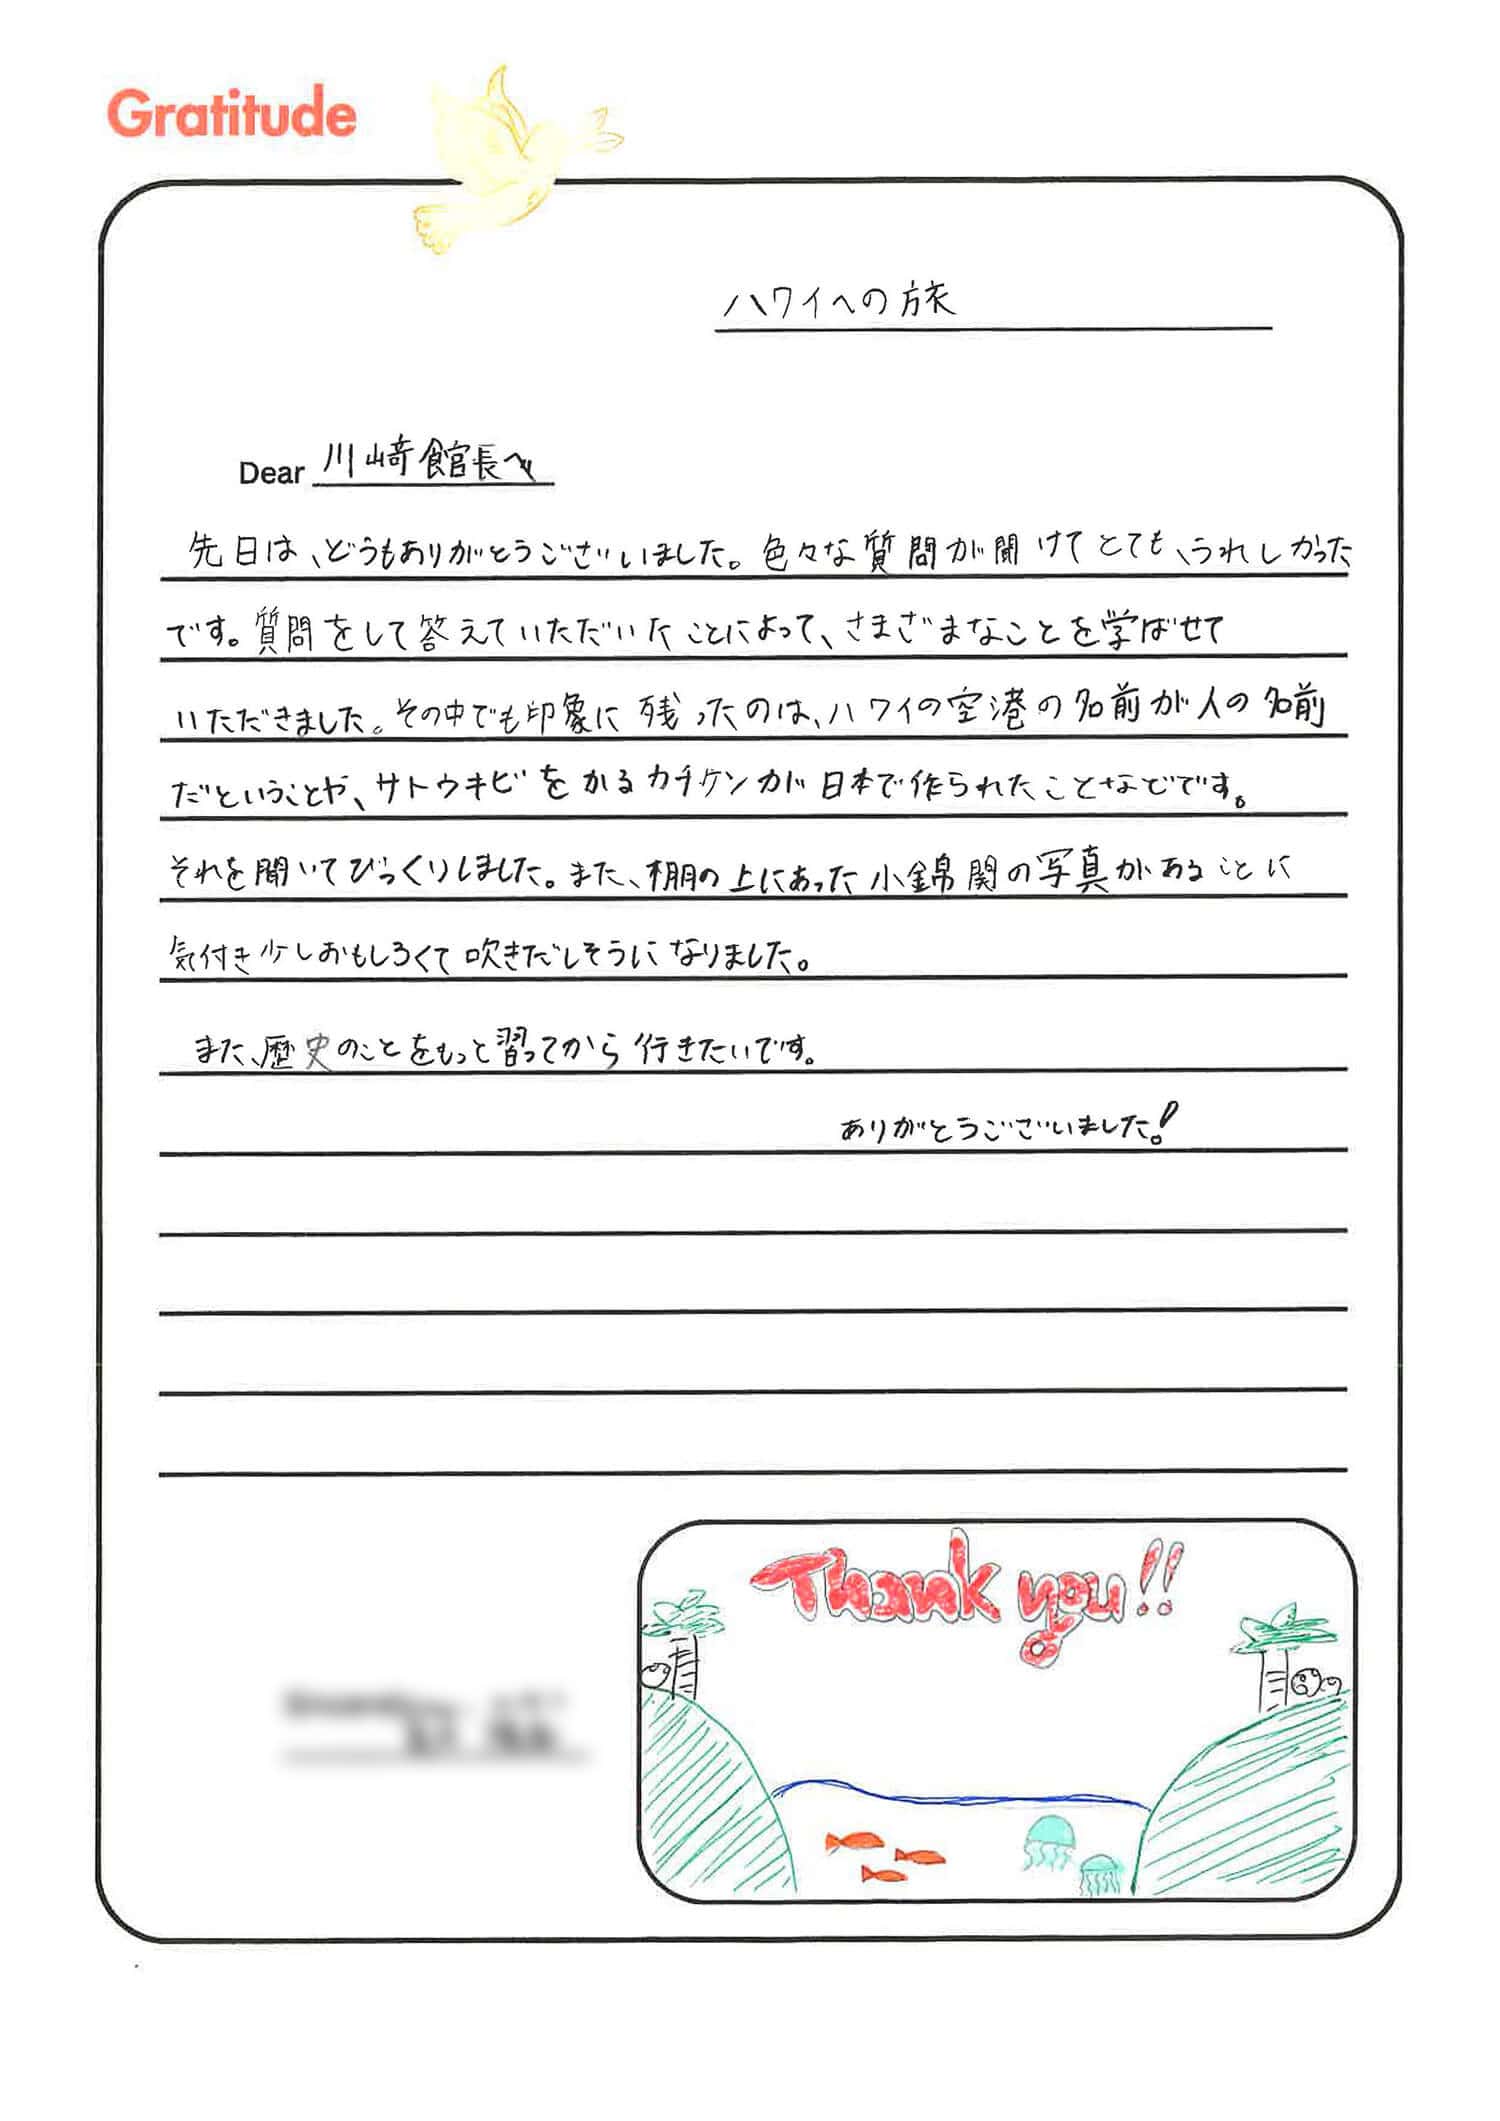 Gratitude
ハワイへの旅
Dear 川﨑館長へ
先日は、どうもありがとうございました。色々な質問が聞けてとても、うれしかった
です。質問をして答えていただいたことによって、さまざまなことを学ばせて
いただきました。その中でも印象に残ったのは、ハワイの空港の名前が人の名前
だということや、サトウキビをかるカチケンが日本で作られたことなどです。
それを聞いてびっくりしました。また、棚の上にあった小錦関の写真があることに
気付き少しおもしろくて吹きだしそうになりました。
また、歴史のことをもっと習ってから行きたいです。
ありがとうございました!
Thank you!!